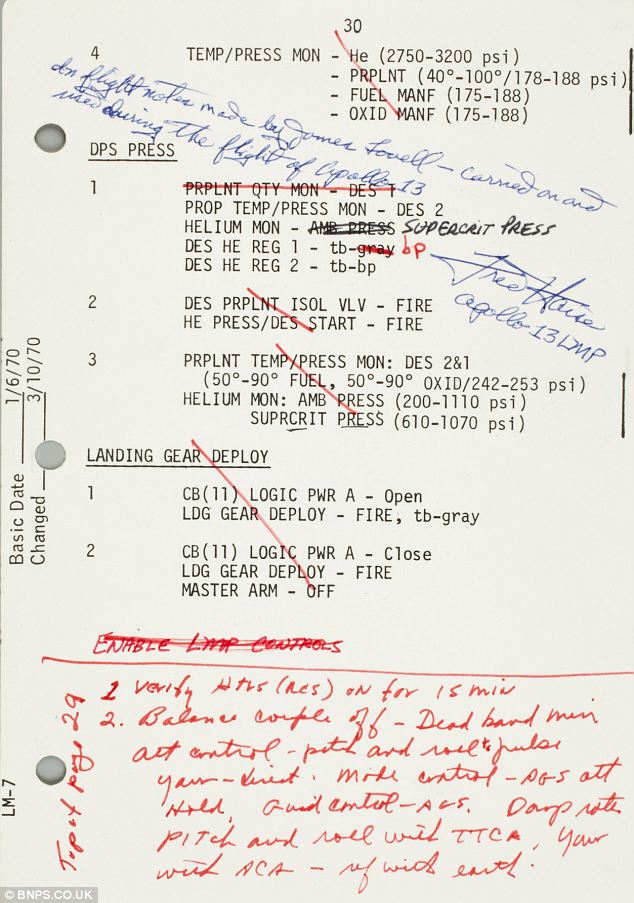 30
4 TEMP/PRESS MON - He (2750-3200 psi)
- PRPLNT (40°-100°/178-188 psi)
- FUEL MANF (175-188)
- OXID MANF (175-188)
In flight notes made by James Lovell - carried on and
used during the flight of Apollo 13
DPS PRESS
1 PRPLNT QTY MON - DES 1
PROP TEMP/PRESS MON - DES 2
HELIUM MON - AMB PRESS SUPERCRIT PRESS
DES HE REG 1 - tb-gray bp
DES HE REG 2 - tb-bp
Fred Haise
Apollo 13 LMP
2 DES PRPLNT ISOL VLV - FIRE
HE PRESS/DES START - FIRE
3 PRPLNT TEMP/PRESS MON: DES 2&1
(50°-90° FUEL, 50°-90° OXID/242-253 psi)
HELIUM MON: AMB PRESS (200-1110 psi)
SUPRCRIT PRESS (610-1070 psi)
LANDING GEAR DEPLOY
1 CB(11) LOGIC PWR A - Open
LDG GEAR DEPLOY - FIRE, tb-gray
2 CB(11) LOGIC PWR A - Close
LDG GEAR DEPLOY - FIRE
MASTER ARM - OFF
ENABLE LMP CONTROLS
1 Verify HTRS (RCS) on for 15 min
2. Balance couple off - Dead band min
att control - pitch and roll to pulse
yaw - direct. Mode control - AGS att
Hold, Guid control - AGS. Damp rates
PITCH and roll with TTCA, Yaw
with ACA - ref with earth.
Top of page 29
Basic Date 1/6/70
Changed 3/10/70
LM-7
© BNPS.CO.UK